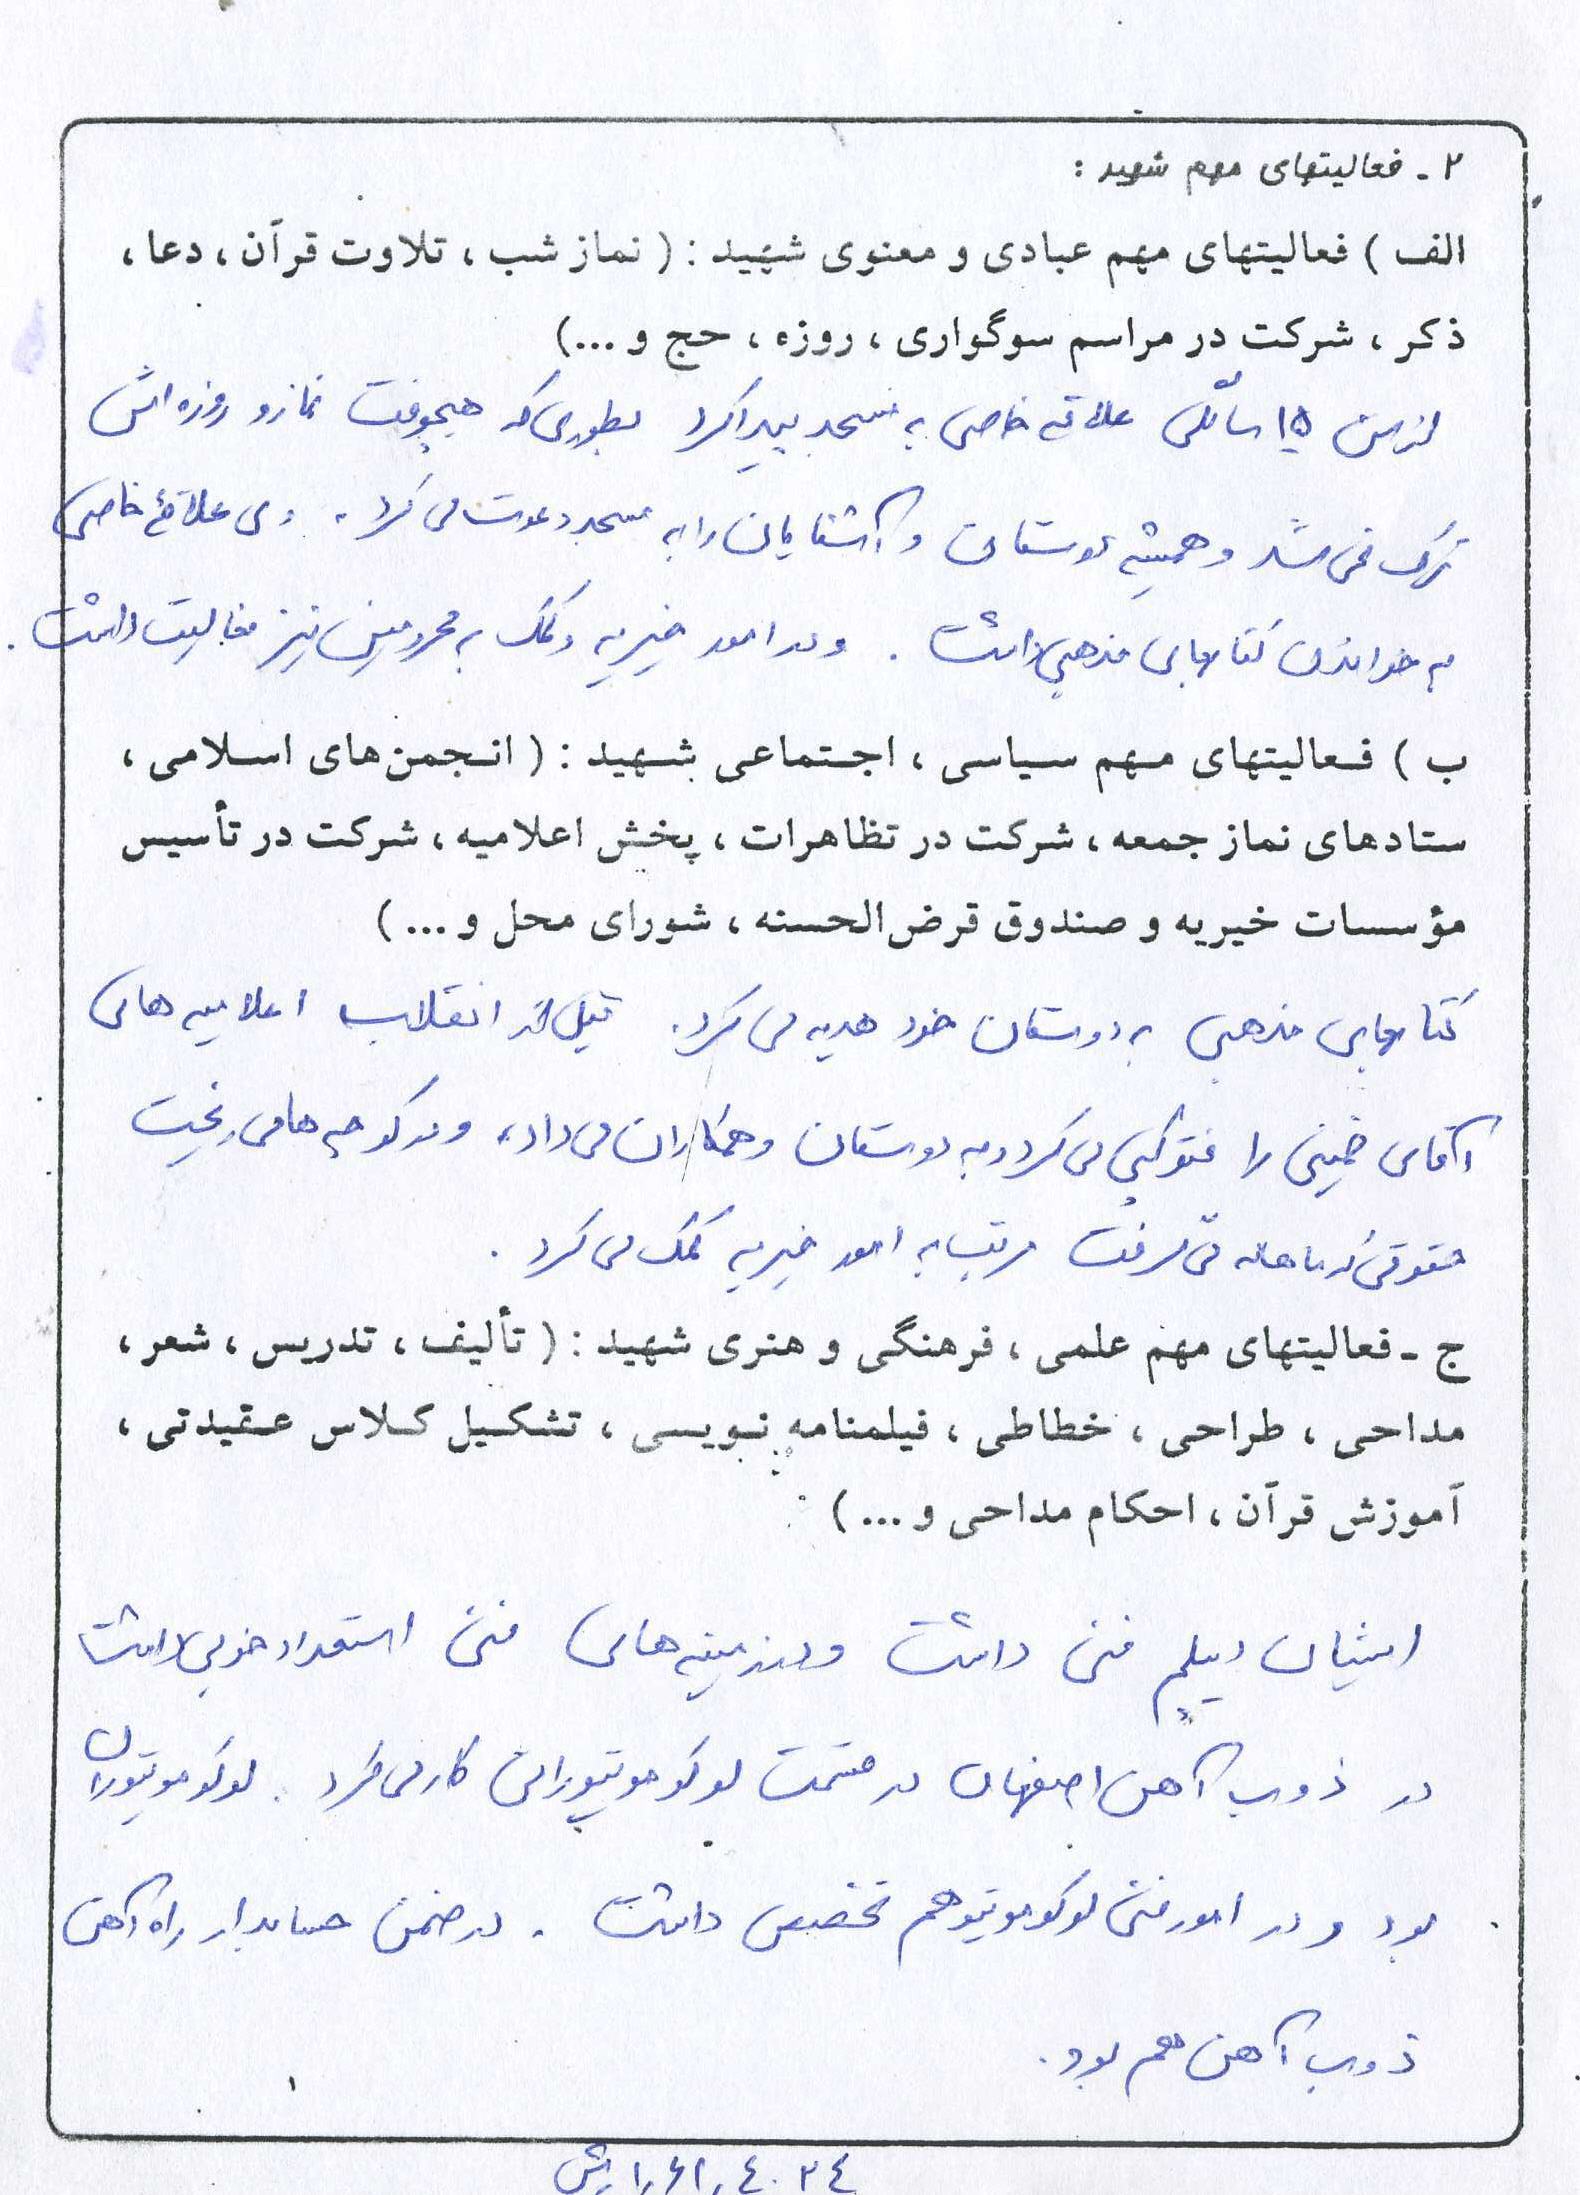 ۲ ـ فعالیتهای مهم شهید :
الف ) فعالیتهای مهم عبادی و معنوی شهید : ( نماز شب ، تلاوت قرآن ، دعا ،
ذکر ، شرکت در مراسم سوگواری ، روزه ، حج و ...)
از سن ۱۵ سالگی علاقه خاصی به مسجد پیدا کرد بطوری که هیچوقت نماز و روزه اش
ترک نمی شد و همیشه دوستان و آشنایان را به مسجد دعوت می کرد . وی علاقهٔ خاصی
به خواندن کتابهای مذهبی داشت . و در امور خیریه و کمک به محرومین نیز فعالیت داشت .
ب ) فعالیتهای مهم سیاسی ، اجتماعی شهید : ( انجمن های اسلامی ،
ستادهای نماز جمعه ، شرکت در تظاهرات ، پخش اعلامیه ، شرکت در تأسیس
مؤسسات خیریه و صندوق قرض الحسنه ، شورای محل و ... )
کتابهای مذهبی به دوستان خود هدیه می کرد . قبل از انقلاب اعلامیه های
آقای خمینی را فتوکپی می کرد و به دوستان و همکاران می داد ، و در کوچه ها می ریخت
حقوقی که ماهانه می گرفت مرتب به امور خیریه کمک می کرد .
ج ـ فعالیتهای مهم علمی ، فرهنگی و هنری شهید : ( تألیف ، تدریس ، شعر ،
مداحی ، طراحی ، خطاطی ، فیلمنامه نویسی ، تشکیل کلاس عقیدتی ،
آموزش قرآن ، احکام مداحی و ... )
ایشان دیپلم فنی داشت و در زمینه های فنی استعداد خوبی داشت
در ذوب آهن اصفهان در قسمت لوکوموتیورانی کار می کرد . لوکوموتیوران
بود و در امور فنی لوکوموتیو هم تخصص داشت . در ضمن حسابدار راه آهن
ذوب آهن هم بود .